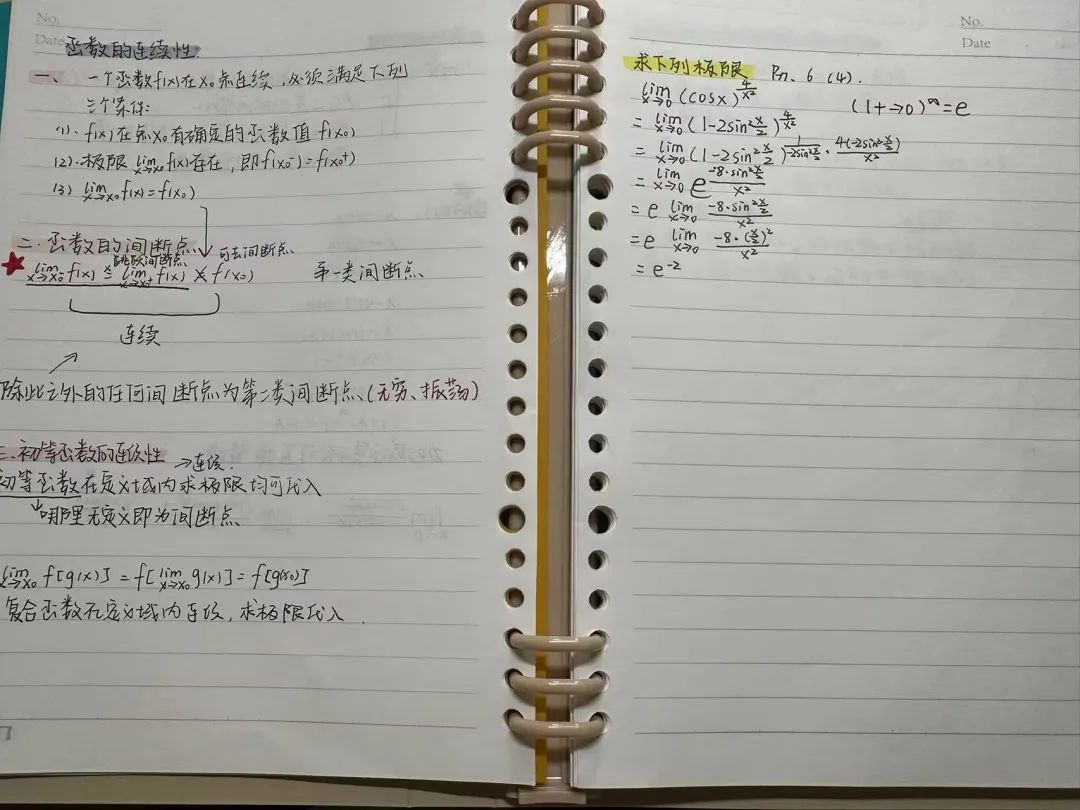 No.
Date
函数的连续性.
一、一个函数f(x)在x₀点连续,必须满足下列
三个条件:
(1). f(x)在点x₀有确定的函数值 f(x₀)
(2). 极限 lim x→x₀ f(x)存在,即f(x₀⁻)=f(x₀⁺)
(3) lim x→x₀ f(x)=f(x₀)
二.函数的间断点
跳跃间断点 可去间断点
lim x→x₀⁻ f(x) ≠ lim x→x₀⁺ f(x) ≠ f(x₀) 第一类间断点
连续
除此之外的任何间断点为第二类间断点(无穷、振荡)
三.初等函数的连续性
→连续.
初等函数在定义域内求极限均可代入
↳哪里无定义即为间断点
lim x→x₀ f[g(x)] = f[lim x→x₀ g(x)] = f[g(x₀)]
复合函数在定义域内连续,求极限代入.
No.
Date
求下列极限 P71. 6 (4).
lim x→0 (cosx)^(4/x²) (1+→0)^∞=e
= lim x→0 (1-2sin²x/2)^(4/x²)
= lim x→0 (1-2sin²x/2)^(1/(-2sin²x/2) · 4(-2sin²x/2)/x²)
= lim x→0 e^(-8·sin²x/2 / x²)
= e lim x→0 -8·sin²x/2 / x²
= e lim x→0 -8·(x/2)² / x²
= e⁻²